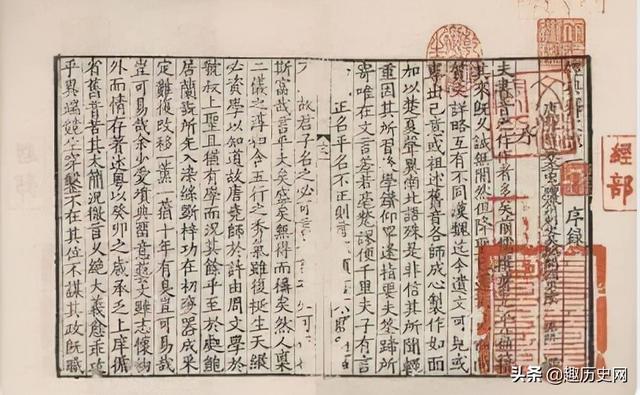 經典釋文
序錄
夫書音之作作者多矣前儒撰著光乎篇籍
其來既久誠無閒然但降聖
質文詳略互有不同漢魏迄今遺文可見或
專出己意或祖述舊音各師成心製作如面
加以楚夏聲異南北語殊是非信其所聞輕
重因其所習後學鑽仰罕逢指要夫筌蹄所
寄唯在文言差若毫釐謬便千里夫子有言
正名乎名不正則言
故君子名之必可言
斯富哉言乎大矣盛矣無得而稱矣然人稟
二儀之淳和含五行之秀氣雖復挺生天縱
必資學以知道故唐堯師於許由周文學於
虢叔上聖且猶有學而況其餘乎至於處鮑
居蘭翫所先入染絲斲梓功在初變器成采
定難復改移一薰一蕕十年有臭豈可易哉
豈可易哉余少愛墳典留意藝文雖志懷物
外而情存著述粵以癸卯之歲承乏上庠循
省舊音苦其太簡況微言久絕大義愈乖攻
乎異端競生穿鑿不在其位不謀其政既職
經部
頭条 @趣历史网